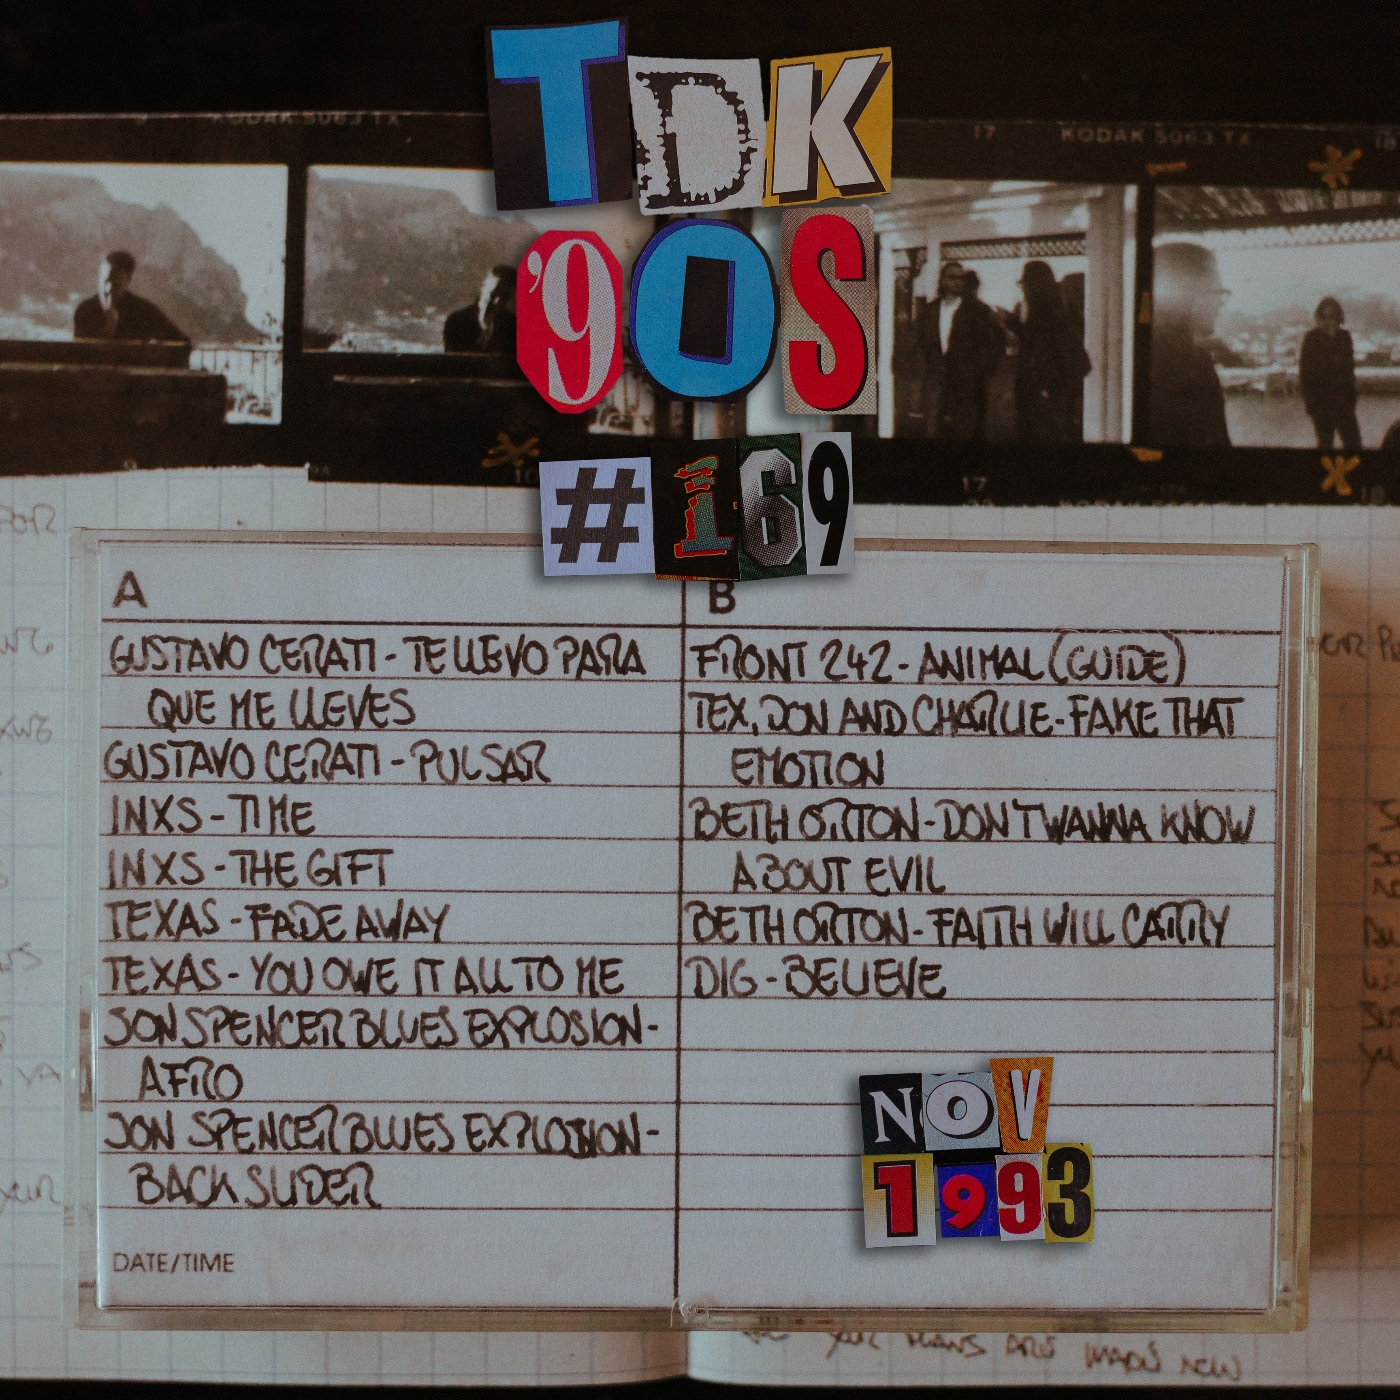 KODAK 5063 TX
17
KODAK 5063 TX
18
TDK
'90S
#169
17
18
A
B
GUSTAVO CERATI - TE LLEVO PARA
QUE ME LLEVES
GUSTAVO CERATI - PULSAR
INXS - TIME
INXS - THE GIFT
TEXAS - FADE AWAY
TEXAS - YOU OWE IT ALL TO ME
JON SPENCER BLUES EXPLOSION -
AFRO
JON SPENCER BLUES EXPLOSION -
BACK SLIDER
DATE/TIME
FRONT 242 - ANIMAL (GUIDE)
TEX, DON AND CHARLIE - FAKE THAT
EMOTION
BETH ORTON - DON'T WANNA KNOW
ABOUT EVIL
BETH ORTON - FAITH WILL CARRY
DIG - BELIEVE
NOV
1993
YOUR PLANS ARE MADE NOW